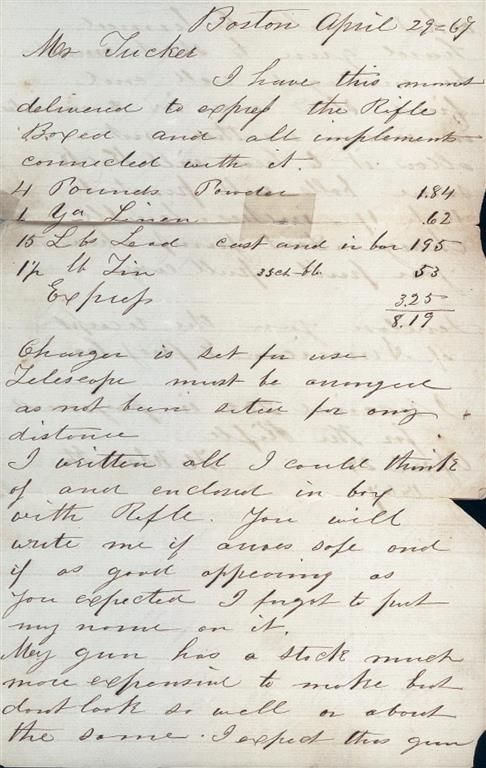 Boston April 29=67
Mr Tucker
I have this moment
delivered to express the Rifle
Boxed and all implement
connected with it.
4 Pounds Powder 1.84
1 Yd Linen .62
15 Lbs Lead cast and in bar 195
1½ lb Tin 35ct lb 53
Express 3.25
8.19
Charger is set for use
Telescope must be arranged
as not been sited for any
distance
I written all I could think
of and enclosed in box
with Rifle. You will
write me if arives safe and
if as good appearing as
you expected I forgot to put
my name on it.
My gun has a stock much
more expensive to make but
dont look so well or about
the same. I expect this gun